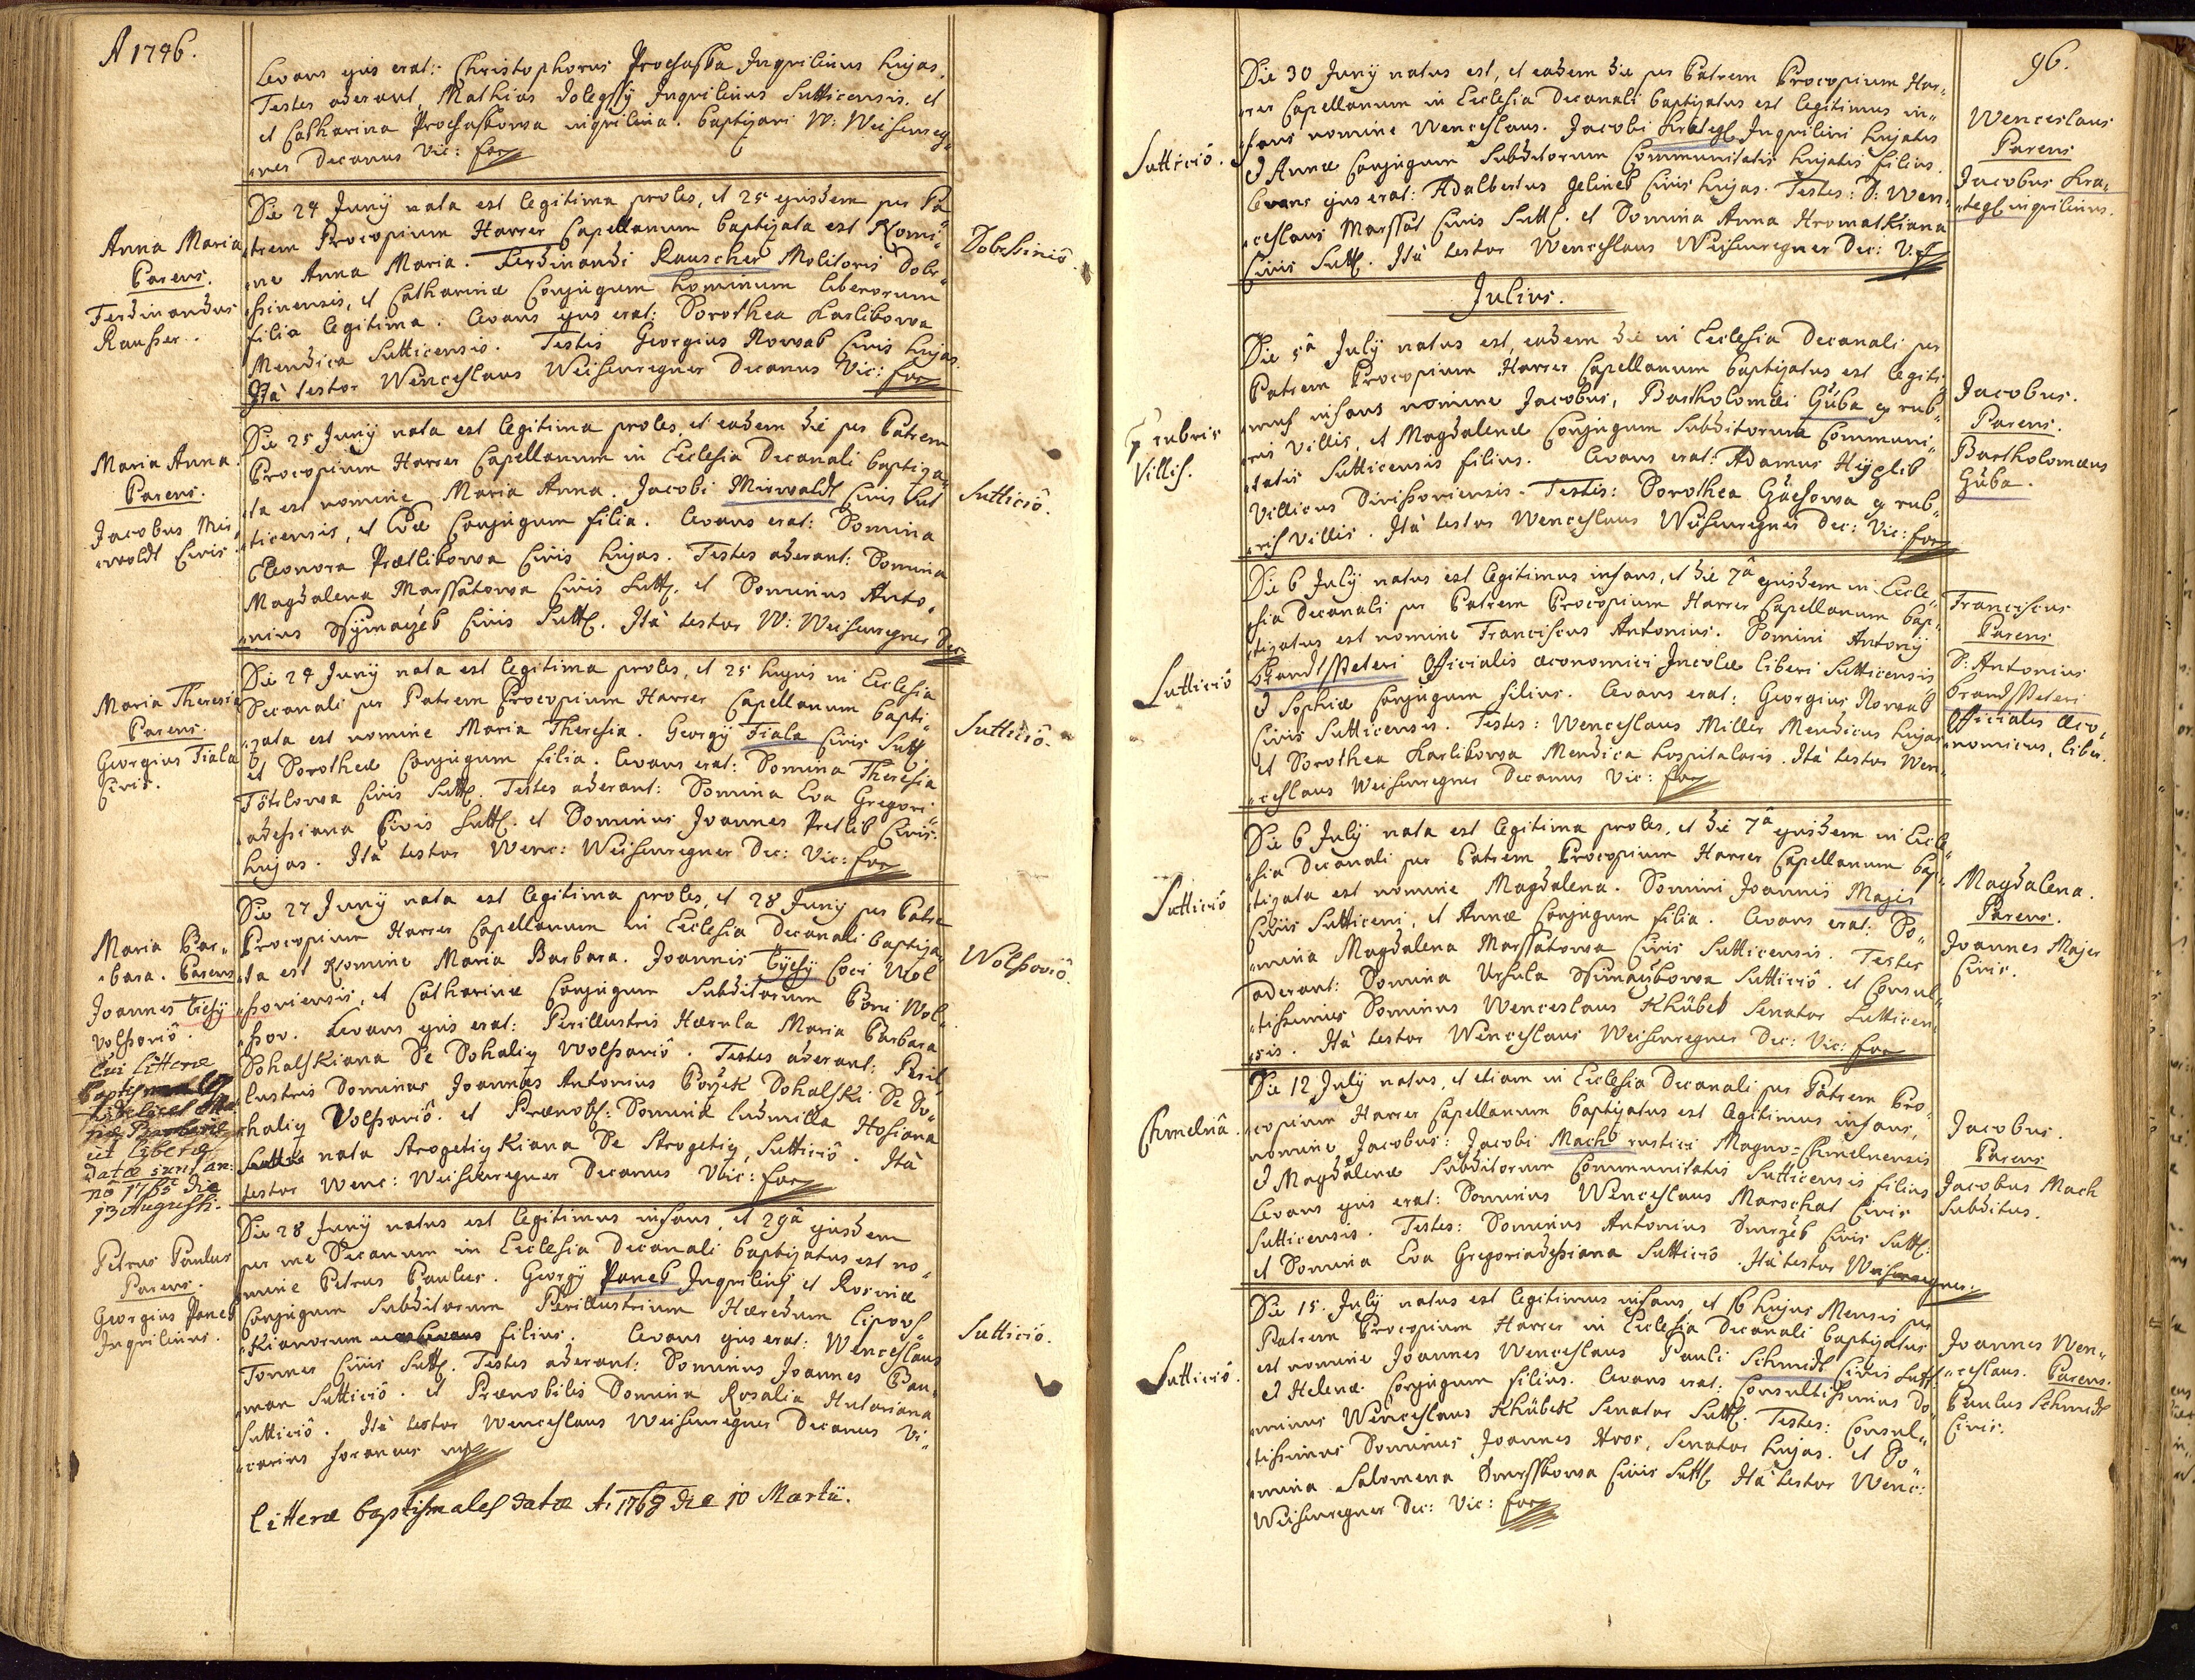 A 1746.
Levans ejus erat: Christophorus Prochaska Inquilinus hujas.
Testes aderant, Mathias Inquilinus Sutticensis. et
et Catharina Prochaskowa inquilina. baptizavi W: Weisenreg„
„ner Decanus Vic: for
Anna Maria
Parens.
Ferdinandus
Rauscher.
Die 24 Junÿ nata est legitima proles, et 25 ejusdem per Pa
„trem Procopium Harrer Capellanum baptizata est Nomi„
„ne Anna Maria. Ferdinandi Rauscher Molitoris Dobr„
„ssinensis, et Catharinæ Conjugum hominum liberorum
filia legitima. Levans ejus erat: Dorothea Karlikowa
Mendica Sutticensis. Testis Georgius Nowak Civis hujas.
Ità testor Wenceslaus Weisenregner Decanus Vic: for
Dobrssiniô.
Maria Anna.
Parens.
Jacobus Mis„
„woldt Civis.
Die 25 Junÿ nata est legitima proles, et eadem die per Patrem
Procopium Harrer Capellanum in Ecclesia Decanali baptiza„
„ta est nomine Maria Anna. Jacobi Miswaldt Civis Sut
„ticensis, et Evæ Conjugum filia. Levans erat: Domina
Eleonora Prætlikowa Civis hujas. Testes aderant: Domina
Magdalena Marssatowa Civis Sutt. et Dominus Anto„
„nius Civis Sutt. Ità testor W: Weisenregner Dec
Sutticiô.
Maria Theresia
Parens.
Georgius Fiala
Civis.
Die 24 Junÿ nata est legitima proles, et 25 hujus in Ecclesia
Decanali per Patrem Procopium Harrer Capellanum bapti„
„zata est nomine Maria Theresia. Georgÿ Fiala Civis Sutt.
et Dorotheæ Conjugum filia. Levans erat: Domina Theresia
Civis Sutt. Testes aderant: Domina Eva Gregori„
„adessiana Civis Sutt. et Dominus Joannes Pretlik Civis
hujas. Ità testor Wenc: Weisenregner Dec: Vic: for
Sutticiô.
Maria Bar„
„bara. Parens
Joannes Tichÿ
Volssoviô.
Cui litteræ
Baptismales
næ Barbaræ
ut liberæ
datæ sunt an:
nô 1765 die
13 Augusti.
Die 27 Junÿ nata est legitima proles, et 28 Junÿ per Patre
Procopium Harrer Capellanum in Ecclesia Decanali baptiza„
„ta est Nomine Maria Barbara. Joannis Tÿchÿ Coci Wol
„ssoviensis, et Catharinæ Conjugum Subditorum Boni Wol„
„ssov. Levans ejus erat: Perillustris Hærula Maria Barbara
Dohalskiana De Dohaliz Wolssoviô. Testes aderant: Peril„
lustris Dominus Joannes Antonius Borzek Dohalski De Do„
„haliz Volssoviô. et Prænob: Domina Ludmilla Hosiana
nata Strogetizkiana De Strogetiz, Sutticiô. Ità
testor Wenc: Weisenregner Decanus Vic: for
Wolssoviô
Petrus Paulus
Parens.
Georgius Panek
Inquilinus.
Die 28 Junÿ natus est legitimus infans, et 29â ejusdem
per me Decanum in Ecclesia Decanali baptizatus est no„
„mine Petrus Paulus. Georgÿ Panek Inquilini et Rosinæ
Conjugum Subditorum Perillustrium Hæredum Lipovs„
„kianorum filius. Levans ejus erat: Wenceslaus
Tonner Civis Sutt. Testes aderant: Dominus Joannes Bau„
„man Sutticiô. et Prænobilis Domina Rosalia Hutariana
Sutticiô. Ità testor Wenceslaus Weisenregner Decanus Vi„
„carius foraneus mp
Sutticiô.
Litteræ baptismales datæ A: 1768 die 10 Martii.
96.
Sutticiô.
Die 30 Junÿ natus est, et eadem die per Patrem Procopium Har„
„rer Capellanum in Ecclesia Decanali baptizatus est legitimus in„
„fans nomine Wenceslaus. Jacobi Inquilini hujatis
& Annæ Conjugum Subditorum Communitatis hujatis filius.
Levans ejus erat: Adalbertus Jelinek Civis hujas. Testes: D: Wen„
„ceslaus Marssat Civis Sutt. et Domina Anna Hromatkiana
Civis Sutt. Ità testor Wenceslaus Weisenregner Dec: V: f
Wenceslaus
Parens
Jacobus Kra„
inquilinus.
Julius.
Ex rubris
Villis.
Die 5â Julÿ natus est, eadem die in Ecclesia Decanali per
Patrem Procopium Harrer Capellanum baptizatus est legiti„
„mus infans nomine Jacobus, Bartholomæi Guba ex rub„
„ris Villis, et Magdalenæ Conjugum Subditorum Communi„
„tatis Sutticensis filius. Levans erat: Adamus
Villicus Testis: Dorothea ex rub„
„ris Villis. Ità testor Wenceslaus Weisenregner Dec: Vic: for
Jacobus.
Parens.
Bartholomæus
Guba.
Sutticiô
Die 6 Julÿ natus est legitimus infans, et die 7â ejusdem in Eccle„
„sia Decanali per Patrem Procopium Harrer Capellanum bap„
„tizatus est nomine Franciscus Antonius. Domini Antonÿ
Brandsteteri Officialis œconomici Incolæ liberi Sutticensis
& Sophiæ Conjugum filius. Levans erat: Georgius Nowak
Civis Sutticensis. Testes: Wenceslaus Miller Mendicus hujas
et Dorothea Karlikowa Mendica hospitalaris. Ità testor Wen„
„ceslaus Weisenregner Decanus Vic: for
Franciscus
Parens
D: Antonius
Brandsteteri
Officialis œco„
nomicus, liber.
Sutticiô
Die 6 Julÿ nata est legitima proles, et die 7â ejusdem in Eccle„
„sia Decanali per Patrem Procopium Harrer Capellanum bap„
„tizata est nomine Magdalena. Domini Joannis Majer
Civis Sutticeni, et Annæ Conjugum filia. Levans erat: Do„
„mina Magdalena Marssatowa Civis Sutticensis. Testes
aderant: Domina Ursula Sutticiô. et Consul„
„tissimus Dominus Wenceslaus Khübek Senator Sutticen„
„sis. Ità testor Wenceslaus Weisenregner Dec: Vic: for
Magdalena.
Parens.
Joannes Majer
Civis.
Chmelnâ.
Die 12 Julÿ natus, et etiam in Ecclesia Decanali per Patrem Pro„
„copium Harrer Capellanum baptizatus est legitimus infans,
nomine, Jacobus: Jacobi Mach rustici Magno=Chmelnensis
& Magdalenæ Subditorum Communitatis Sutticensis filius
Levans ejus erat: Dominus Wenceslaus Marschat Civis
Sutticensis. Testes: Dominus Antonius Civis Sutt:
et Domina Eva Gregoriadessiana Sutticiô. Ità testor Weisenregner.
Jacobus.
Parens
Jacobus Mach
Subditus.
Sutticiô.
Die 15. Julÿ natus est legitimus infans, et 16 hujus Mensis per
Patrem Procopium Harrer in Ecclesia Decanali baptizatus
est nomine Joannes Wenceslaus Pauli Schmidt Civis Sutt.
& Helenæ Conjugum filius. Levans erat: Consultissimus Do„
„minus Wenceslaus Khübek Senator Sutt. Testes: Consul„
„tissimus Dominus Joannes Hros, Senator hujas. et Do„
„mina Salomena Civis Sutt Ità testor Wenc:
Weisenregner Dec: Vic: for
Joannes Wen„
„ceslaus. Parens.
Paulus Schmidt
Civis.